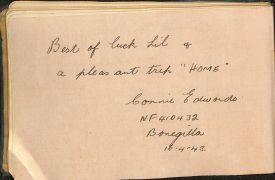 Best of luck Lil &
a pleasant trip "HOME"
Connie Edwards
NF410432
Bonegilla